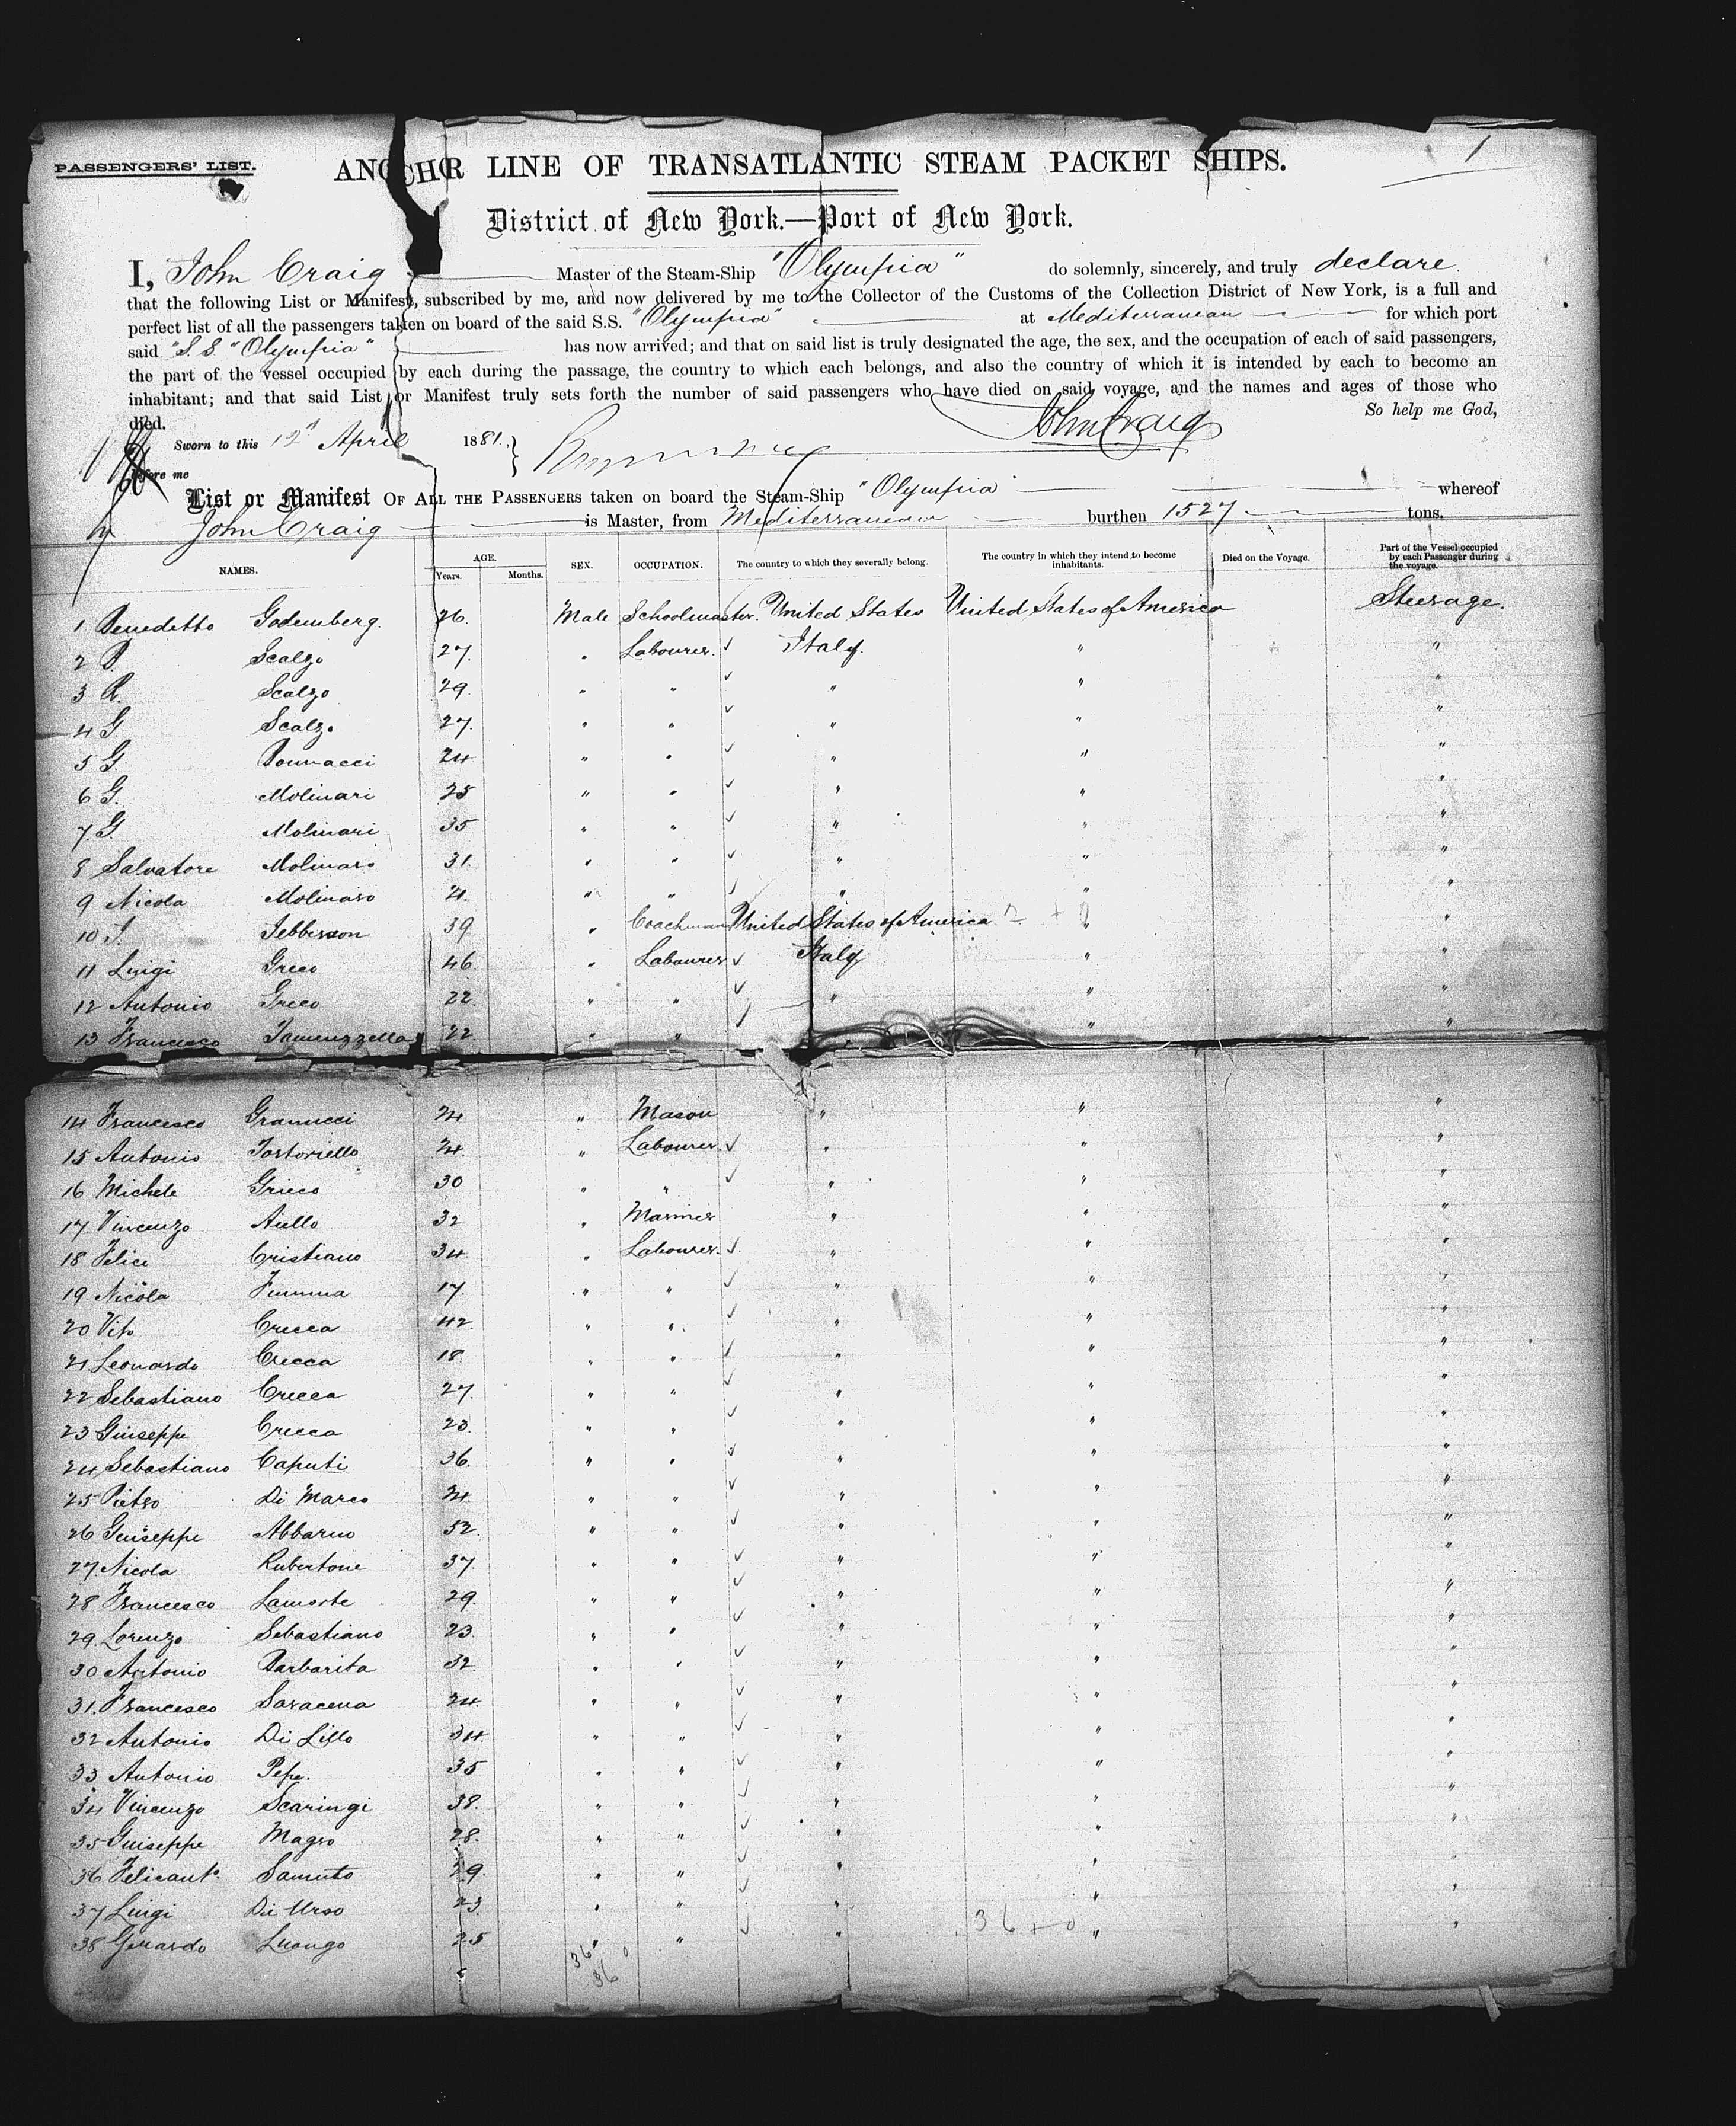 1
PASSENGERS' LIST.
ANCHOR LINE OF TRANSATLANTIC STEAM PACKET SHIPS.
District of New York.—Port of New York.
I, John Craig Master of the Steam-Ship "Olympia" do solemnly, sincerely, and truly declare
that the following List or Manifest, subscribed by me, and now delivered by me to the Collector of the Customs of the Collection District of New York, is a full and
perfect list of all the passengers taken on board of the said S.S. "Olympia" at Mediterranean for which port
said "S.S "Olympia" has now arrived; and that on said list is truly designated the age, the sex, and the occupation of each of said passengers,
the part of the vessel occupied by each during the passage, the country to which each belongs, and also the country of which it is intended by each to become an
inhabitant; and that said List or Manifest truly sets forth the number of said passengers who have died on said voyage, and the names and ages of those who
died. So help me God,
John Craig
Sworn to this 12th April 1881.
before me
List or Manifest OF ALL THE PASSENGERS taken on board the Steam-Ship "Olympia" whereof
John Craig is Master, from Mediterranean burthen 1527 tons.
NAMES. AGE. Years. Months. SEX. OCCUPATION. The country to which they severally belong. The country in which they intend to become inhabitants. Died on the Voyage. Part of the Vessel occupied by each Passenger during the voyage.
1 Benedetto Godemberg. 26. Male Schoolmaster. United States United States of America Steerage.
2 P. Scalzo 27. " Labourer. Italy. " "
3 R. Scalzo 29. " " " " "
4 G Scalzo 27. " " " " "
5 G. Bonnacci 24 " " " " "
6 G. Molinari 25 " " " " "
7. G Molinari 35 " " " " "
8 Salvatore Molinaro 31. " " " " "
9 Nicola Molinaro 21. " " " " "
10 J. Jebberson 39 " Coachman United States of America " "
11 Luigi Greco 46. " Labourer Italy " "
12 Antonio Greco 22. " " " " "
13 Francesco 22 " " " "
14 Francesco Granucci 24 " Mason " " "
15 Antonio Tortoriello 24. " Labourer. " " "
16 Michele Grieco 30 " " " " "
17. Vincenzo Aiello 32 " Mariner " " "
18 Felice Cristiano 34. " Labourer. " " "
19 Nicola Fiumma 17. " " " " "
20 Vito Crecca 42 " " " " "
21 Leonardo Crecca 18 " " " " "
22 Sebastiano Crecca 27. " " " " "
23 Giuseppe Crecca 23. " " " " "
24 Sebastiano Caputi 36. " " " " "
25 Pietro Di Marco 24. " " " " "
26 Giuseppe Abbarno 52. " " " " "
27. Nicola Rubertone 37. " " " " "
28 Francesco Lamorte 29. " " " " "
29 Lorenzo Sebastiano 23. " " " " "
30 Antonio Barbarita 32. " " " " "
31. Francesco Saracena 24. " " " " "
32 Antonio Di Lillo 34. " " " " "
33 Antonio Pepe. 35 " " " " "
34 Vincenzo Scaringi 38. " " " " "
35 Guiseppe Magro 28. " " " " "
36 Felicanto. Samuto 29. " " " " "
37 Luigi Di Urso 23. " " " " "
38 Gerardo Luongo 25 " " " " "
36 + 0
36 0
36